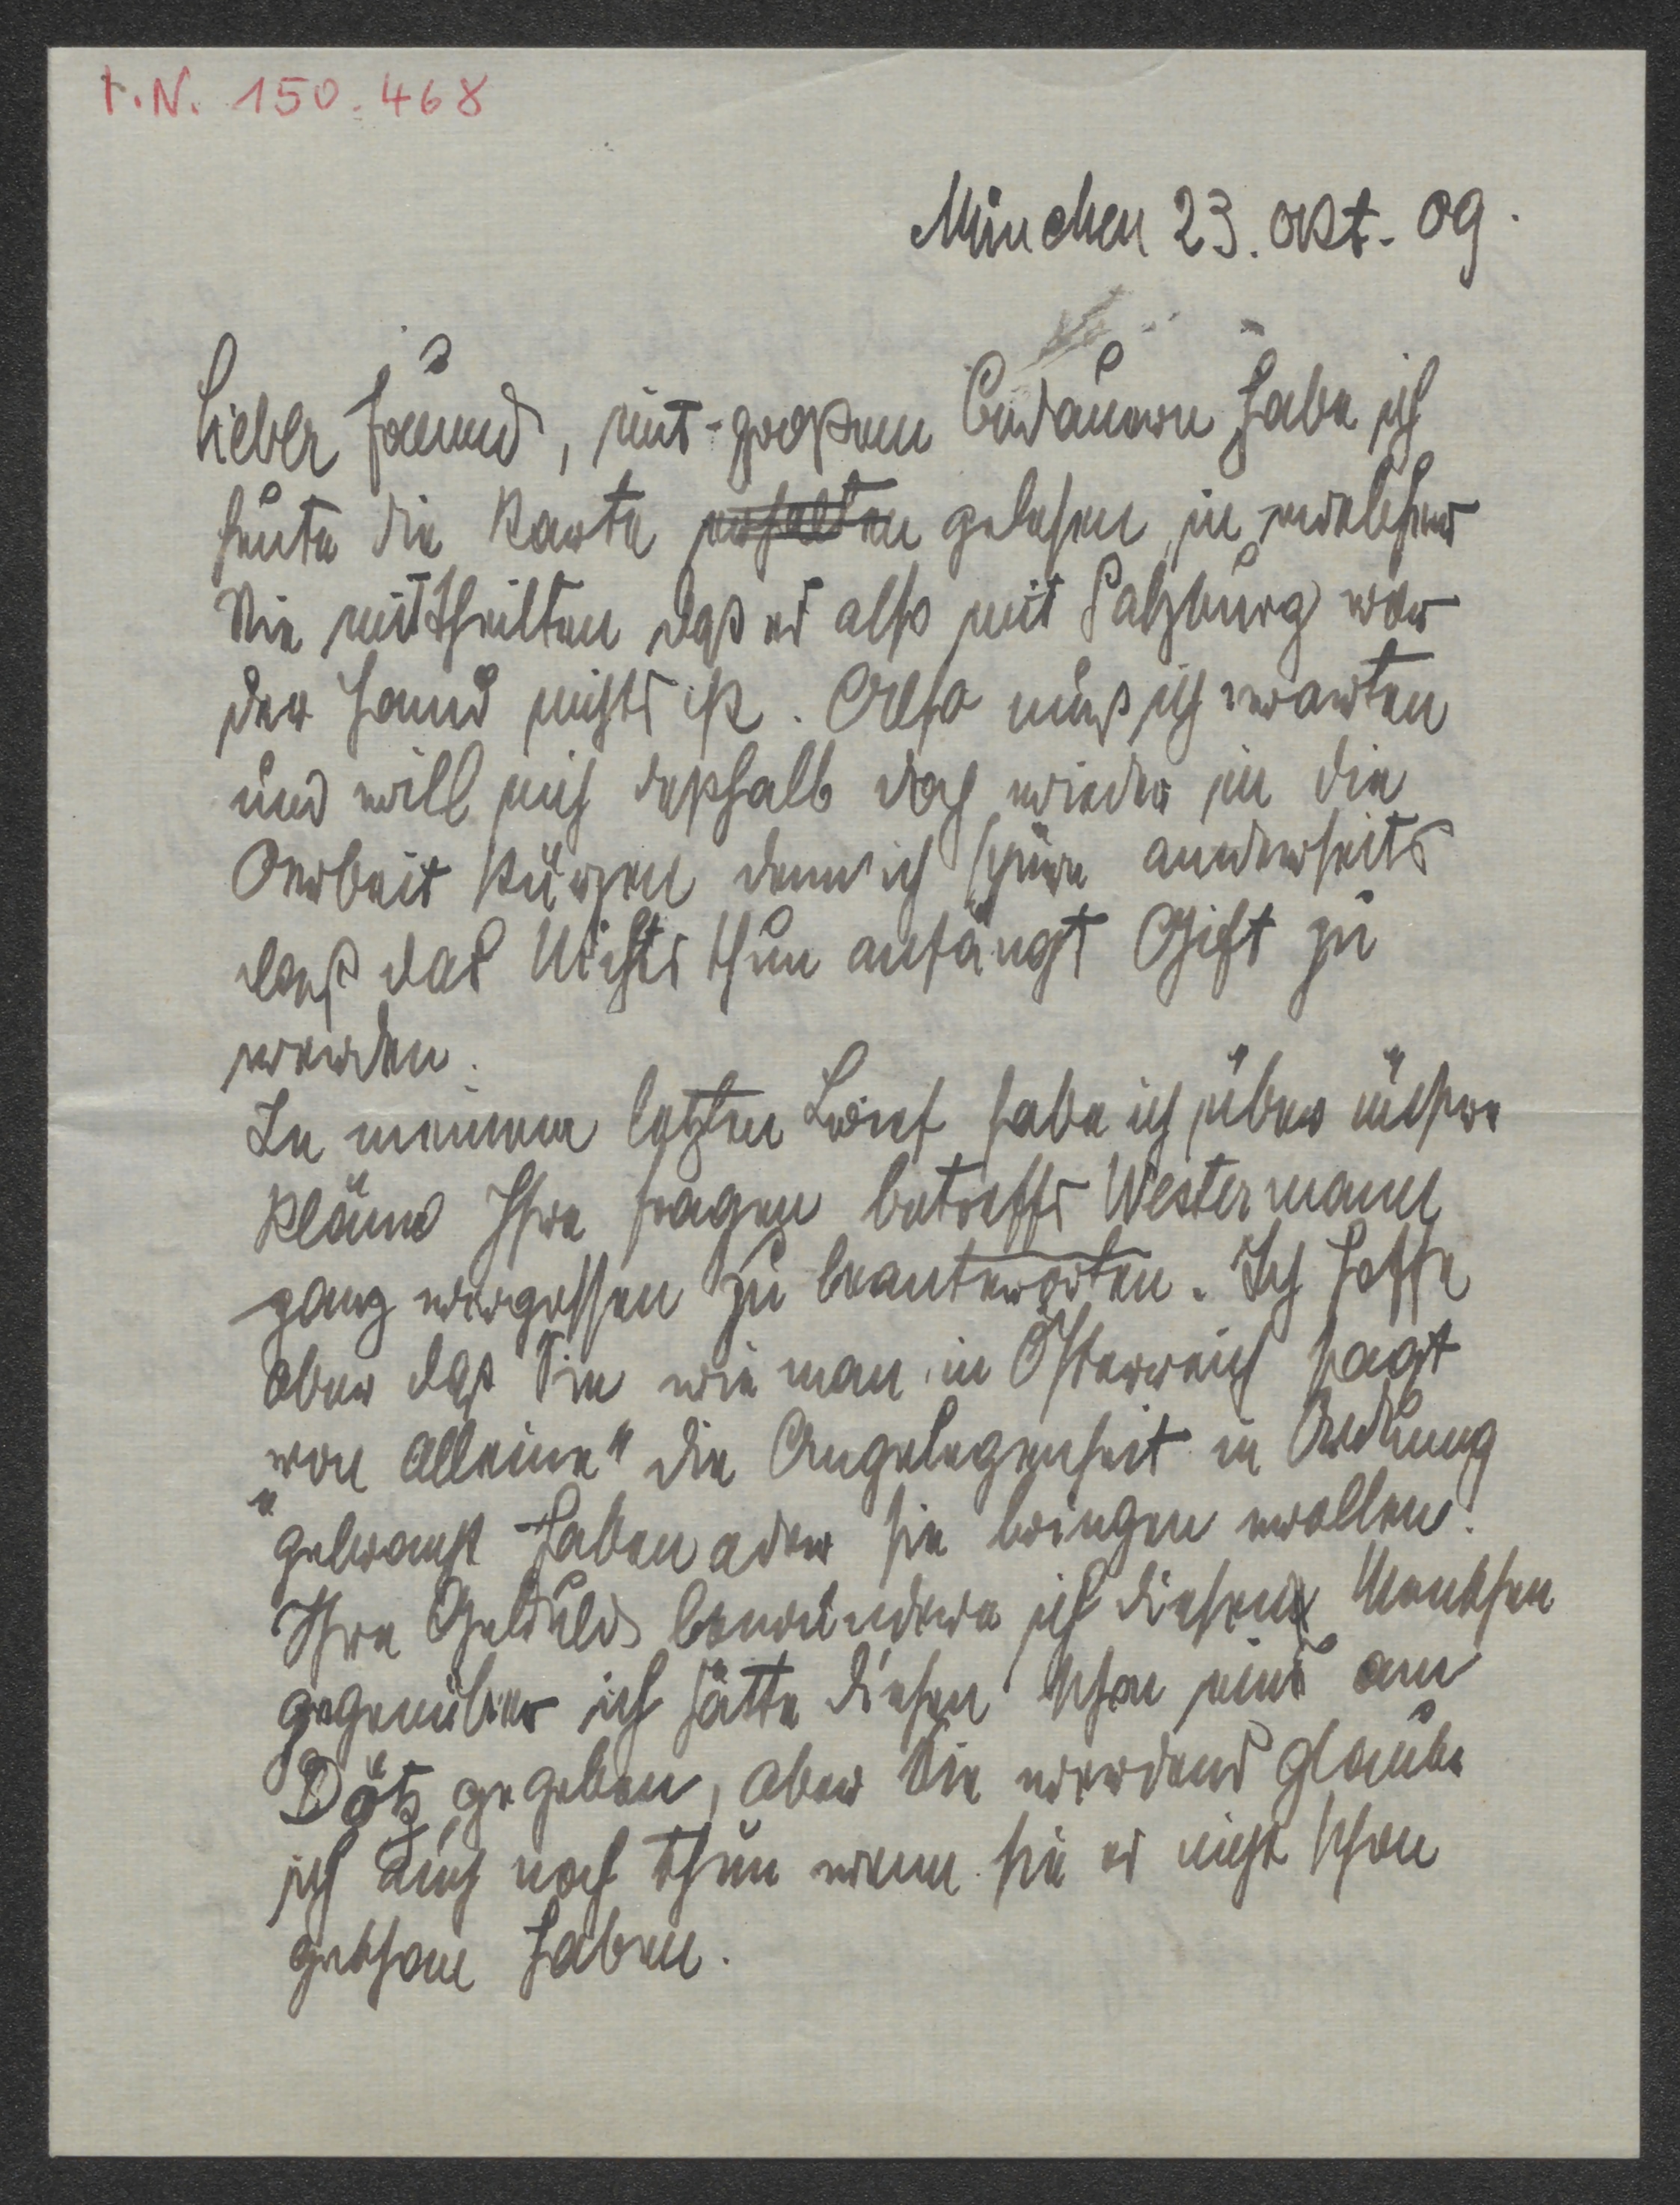 I.N. 150.468
München 23. Okt. 09.
Lieber Freund, mit großem Bedauern habe ich
heute die Karte erhalten gelesen, in welcher
Sie mittheilten daß es also mit Salzburg vor
der Hand nichts ist. Also muß ich warten
und will mich deßhalb doch wieder in die
Arbeit stürzen denn ich spüre anderseits
daß das Nichts thun anfängt Gift zu
werden.
In meinem letzten Brief habe ich über unsere
Pläne Ihre Fragen betreffs Westermann
ganz vergessen zu beantworten. Ich hoffe
aber daß Sie wie man in Österreich sagt
„von alleine" die Angelegenheit in Ordnung
gebracht haben oder sie bringen wollen.
Ihre Geduld bewundere ich diesen Menschen
gegenüber ich hätte diesen schon eins am
Dötz gegeben, aber Sie werdens glaube
ich auch noch thun wenn sie es nicht schon
gethan haben.